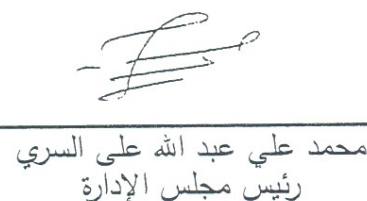 محمد علي عبد الله على السري
رئيس مجلس الإدارة